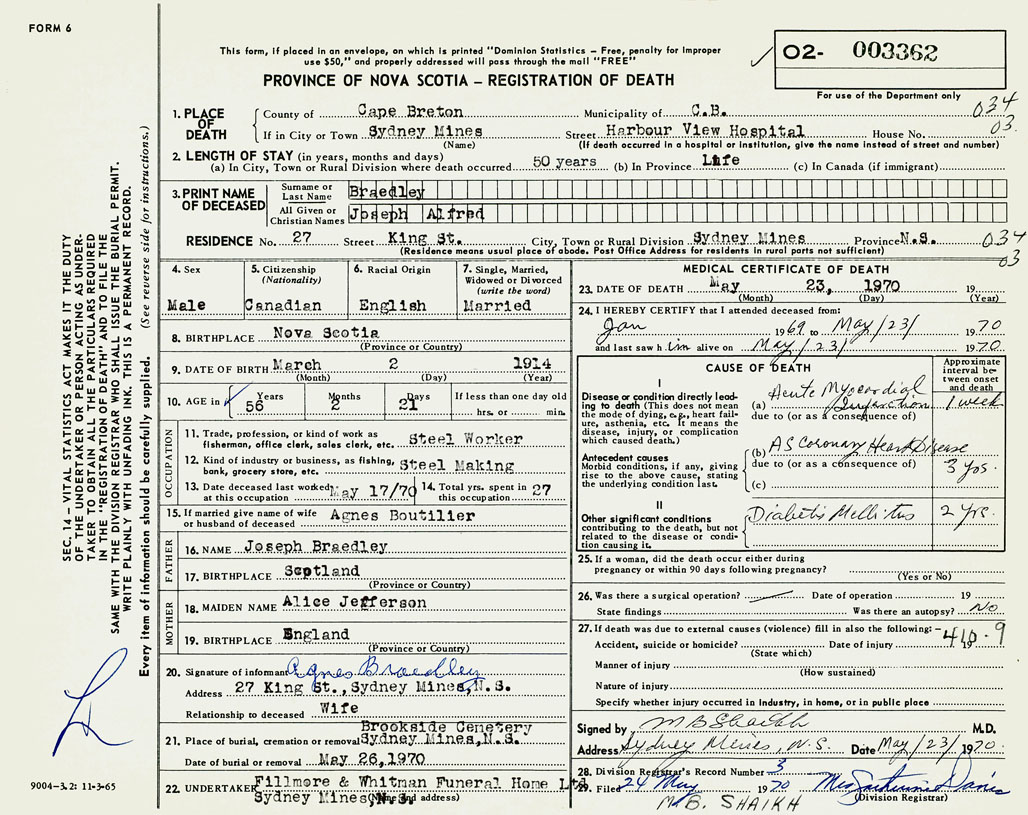 FORM 6
This form, if placed in an envelope, on which is printed "Dominion Statistics – Free, penalty for improper
use $50," and properly addressed will pass through the mail "FREE"
PROVINCE OF NOVA SCOTIA – REGISTRATION OF DEATH
O2- 003362
For use of the Department only
034
03.
1. PLACE OF DEATH
County of Cape Breton Municipality of C.B.
If in City or Town Sydney Mines Street Harbour View Hospital House No.
(Name) (If death occurred in a hospital or institution, give the name instead of street and number)
2. LENGTH OF STAY (in years, months and days)
(a) In City, Town or Rural Division where death occurred 50 years (b) In Province Life (c) In Canada (if immigrant)
3. PRINT NAME OF DECEASED
Surname or Last Name Braedley
All Given or Christian Names Joseph Alfred
RESIDENCE No. 27 Street King St. City, Town or Rural Division Sydney Mines Province N.S.
(Residence means usual place of abode. Post Office Address for residents in rural parts not sufficient)
034
03
4. Sex
Male
5. Citizenship
(Nationality)
Canadian
6. Racial Origin
English
7. Single, Married,
Widowed or Divorced
(write the word)
Married
8. BIRTHPLACE Nova Scotia
(Province or Country)
9. DATE OF BIRTH March 2 1914
(Month) (Day) (Year)
10. AGE in Years Months Days If less than one day old
56 2 21 hrs. or min.
OCCUPATION
11. Trade, profession, or kind of work as
fisherman, office clerk, sales clerk, etc. Steel Worker
12. Kind of industry or business, as fishing,
bank, grocery store, etc. Steel Making
13. Date deceased last worked
at this occupation May 17/70
14. Total yrs. spent in
this occupation 27
15. If married give name of wife
or husband of deceased Agnes Boutilier
FATHER
16. NAME Joseph Braedley
17. BIRTHPLACE Scotland
(Province or Country)
MOTHER
18. MAIDEN NAME Alice Jefferson
19. BIRTHPLACE England
(Province or Country)
20. Signature of informant Agnes Braedley
Address 27 King St., Sydney Mines, N.S.
Relationship to deceased Wife
Brookside Cemetery
21. Place of burial, cremation or removal Sydney Mines, N.S.
Date of burial or removal May 26,1970
22. UNDERTAKER Fillmore & Whitman Funeral Home Ltd
Sydney Mines, N.S.
(Name and address)
MEDICAL CERTIFICATE OF DEATH
23. DATE OF DEATH May 23, 1970 19
(Month) (Day) (Year)
24. I HEREBY CERTIFY that I attended deceased from:
Jan 1969 to May/23/ 1970
and last saw him alive on May/23/ 1970.
CAUSE OF DEATH
Approximate
interval be-
tween onset
and death
I
Disease or condition directly lead-
ing to death (This does not mean
the mode of dying, e.g., heart fail-
ure, asthenia, etc. It means the
disease, injury, or complication
which caused death.)
(a) Acute Myocardial
Infarction 1 week
due to (or as a consequence of)
Antecedent causes
Morbid conditions, if any, giving
rise to the above cause, stating
the underlying condition last.
(b) AS Coronary Heart Disease
due to (or as a consequence of) 3 yrs.
(c)
II
Other significant conditions
contributing to the death, but not
related to the disease or condi-
tion causing it.
Diabetis Mellitus 2 yrs.
25. If a woman, did the death occur either during
pregnancy or within 90 days following pregnancy?
(Yes or No)
26. Was there a surgical operation? Date of operation 19
State findings Was there an autopsy? No
27. If death was due to external causes (violence) fill in also the following: –
410.9
Accident, suicide or homicide? Date of injury 19
(State which)
Manner of injury
(How sustained)
Nature of injury
Specify whether injury occurred in industry, in home, or in public place
Signed by M B Shaikh M.D.
Address Sydney Mines, N.S. Date May/23/ 1970.
28. Division Registrar's Record Number 3
29. Filed 24 May 1970 Mrs Davis
(Division Registrar)
M. B. SHAIKH
SEC. 14 – VITAL STATISTICS ACT MAKES IT THE DUTY
OF THE UNDERTAKER OR PERSON ACTING AS UNDER-
TAKER TO OBTAIN ALL THE PARTICULARS REQUIRED
IN THE "REGISTRATION OF DEATH" AND TO FILE THE
SAME WITH THE DIVISION REGISTRAR WHO SHALL ISSUE THE BURIAL PERMIT.
WRITE PLAINLY WITH UNFADING INK. THIS IS A PERMANENT RECORD.
Every item of information should be carefully supplied. (See reverse side for instructions.)
9004–3.2: 11-3-65